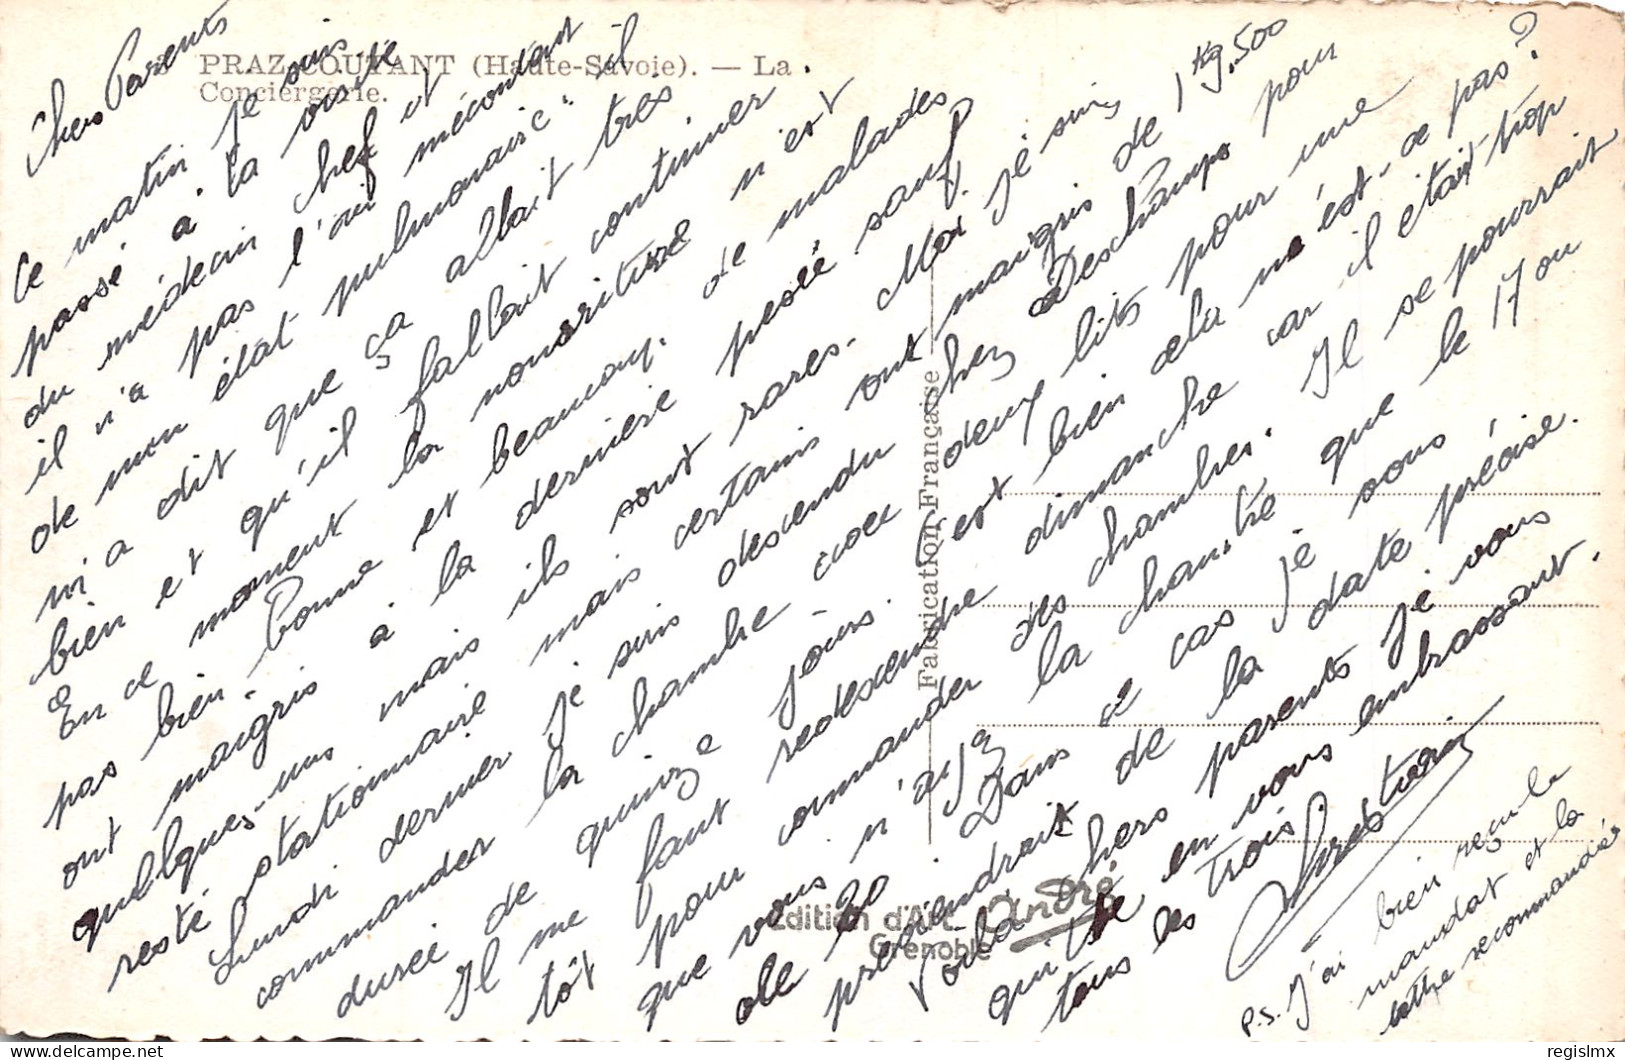 PRAZ-COUTANT (Haute-Savoie). — La
Conciergerie.
Chers Parents
Ce matin je suis
passé à la visite
du médecin chef et
il n'a pas l'air mécontant
de mon état pulmonaire" il
m'a dit que ça allait très
bien et qu'il fallait continuer.
En ce moment la nourriture n'est
pas bien bonne et beaucoup de malades
ont maigris à la dernière pesée sauf
quelques-uns mais ils sont rares. Moi je suis
resté stationnaire mais certains ont maigris de 1 kg.500
Lundi dernier je suis descendu chez Deschamps pour
commander la chambre avec deux lits pour une
durée de quinze jours. C'est bien cela n'est-ce pas?
Il me faut redescendre dimanche car il était trop
tôt pour commander des chambres. Il se pourrait
que vous n'ayez la chambre que le 17 ou
le 20 Dans ce cas je vous
préviendrait de la date précise.
Voilà chers parents je vous
quitte en vous embrassant.
tous les trois
P.S. J'ai bien reçu le
mandat et la
lettre recommandée
Fabrication Française
Edition d'Art André
Grenoble
regislmx